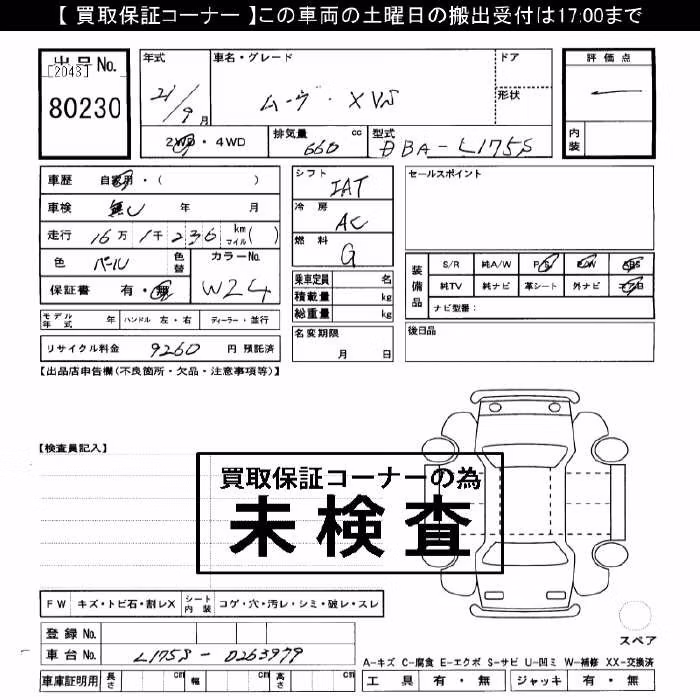 【 買取保証コーナー 】この車両の土曜日の搬出受付は17:00まで
出品No.
[2043]
80230
年式 21/9月
車名・グレード ムーヴ・XVS
ドア
形状
評価点 ―
内装
2WD・4WD
排気量 660 cc
型式 DBA-L175S
車歴 自家用・( )
車検 無し 年 月
走行 16万1千236 km マイル( )
色 パール 色替
カラーNo. W24
保証書 有・無
シフト IAT
冷房 AC
燃料 G
乗車定員 名
積載量 kg
総重量 kg
セールスポイント
装備品 S/R 純A/W P/S P/W ABS
純TV 純ナビ 革シート 外ナビ エアB
ナビ型番:
モデル年式 年 ハンドル 左・右 ディーラー・並行
名変期限 月 日
後日品
リサイクル料金 9260 円 預託済
【出品店申告欄(不良箇所・欠品・注意事項等)】
【検査員記入】
買取保証コーナーの為
未検査
FW キズ・トビ石・割レX シート内装 コゲ・穴・汚レ・シミ・破レ・スレ
登録No.
車台No. L175S-0263979
車庫証明用 長さ cm 幅 cm 高さ cm
スペア
A-キズ C-腐食 E-エクボ S-サビ U-凹ミ W-補修 XX-交換済
工具 有・無 ジャッキ 有・無